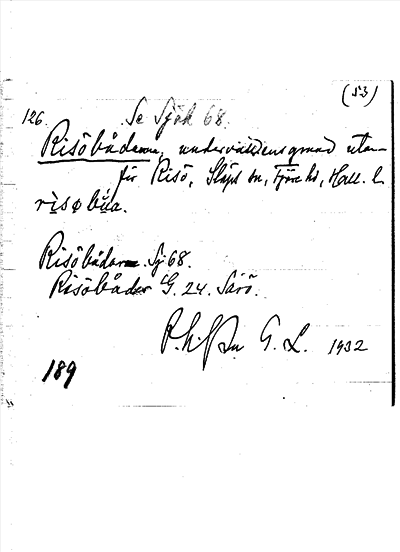 (53)
Se Sjök 68.
126.
Risöbådarna, undervattensgrund utan-
för Risö, Släps sn, Fjäre hd, Hall. l.
Risöbådarna. Sj 68.
Risöbådar G. 24. Särö.
G. L. 1932
189